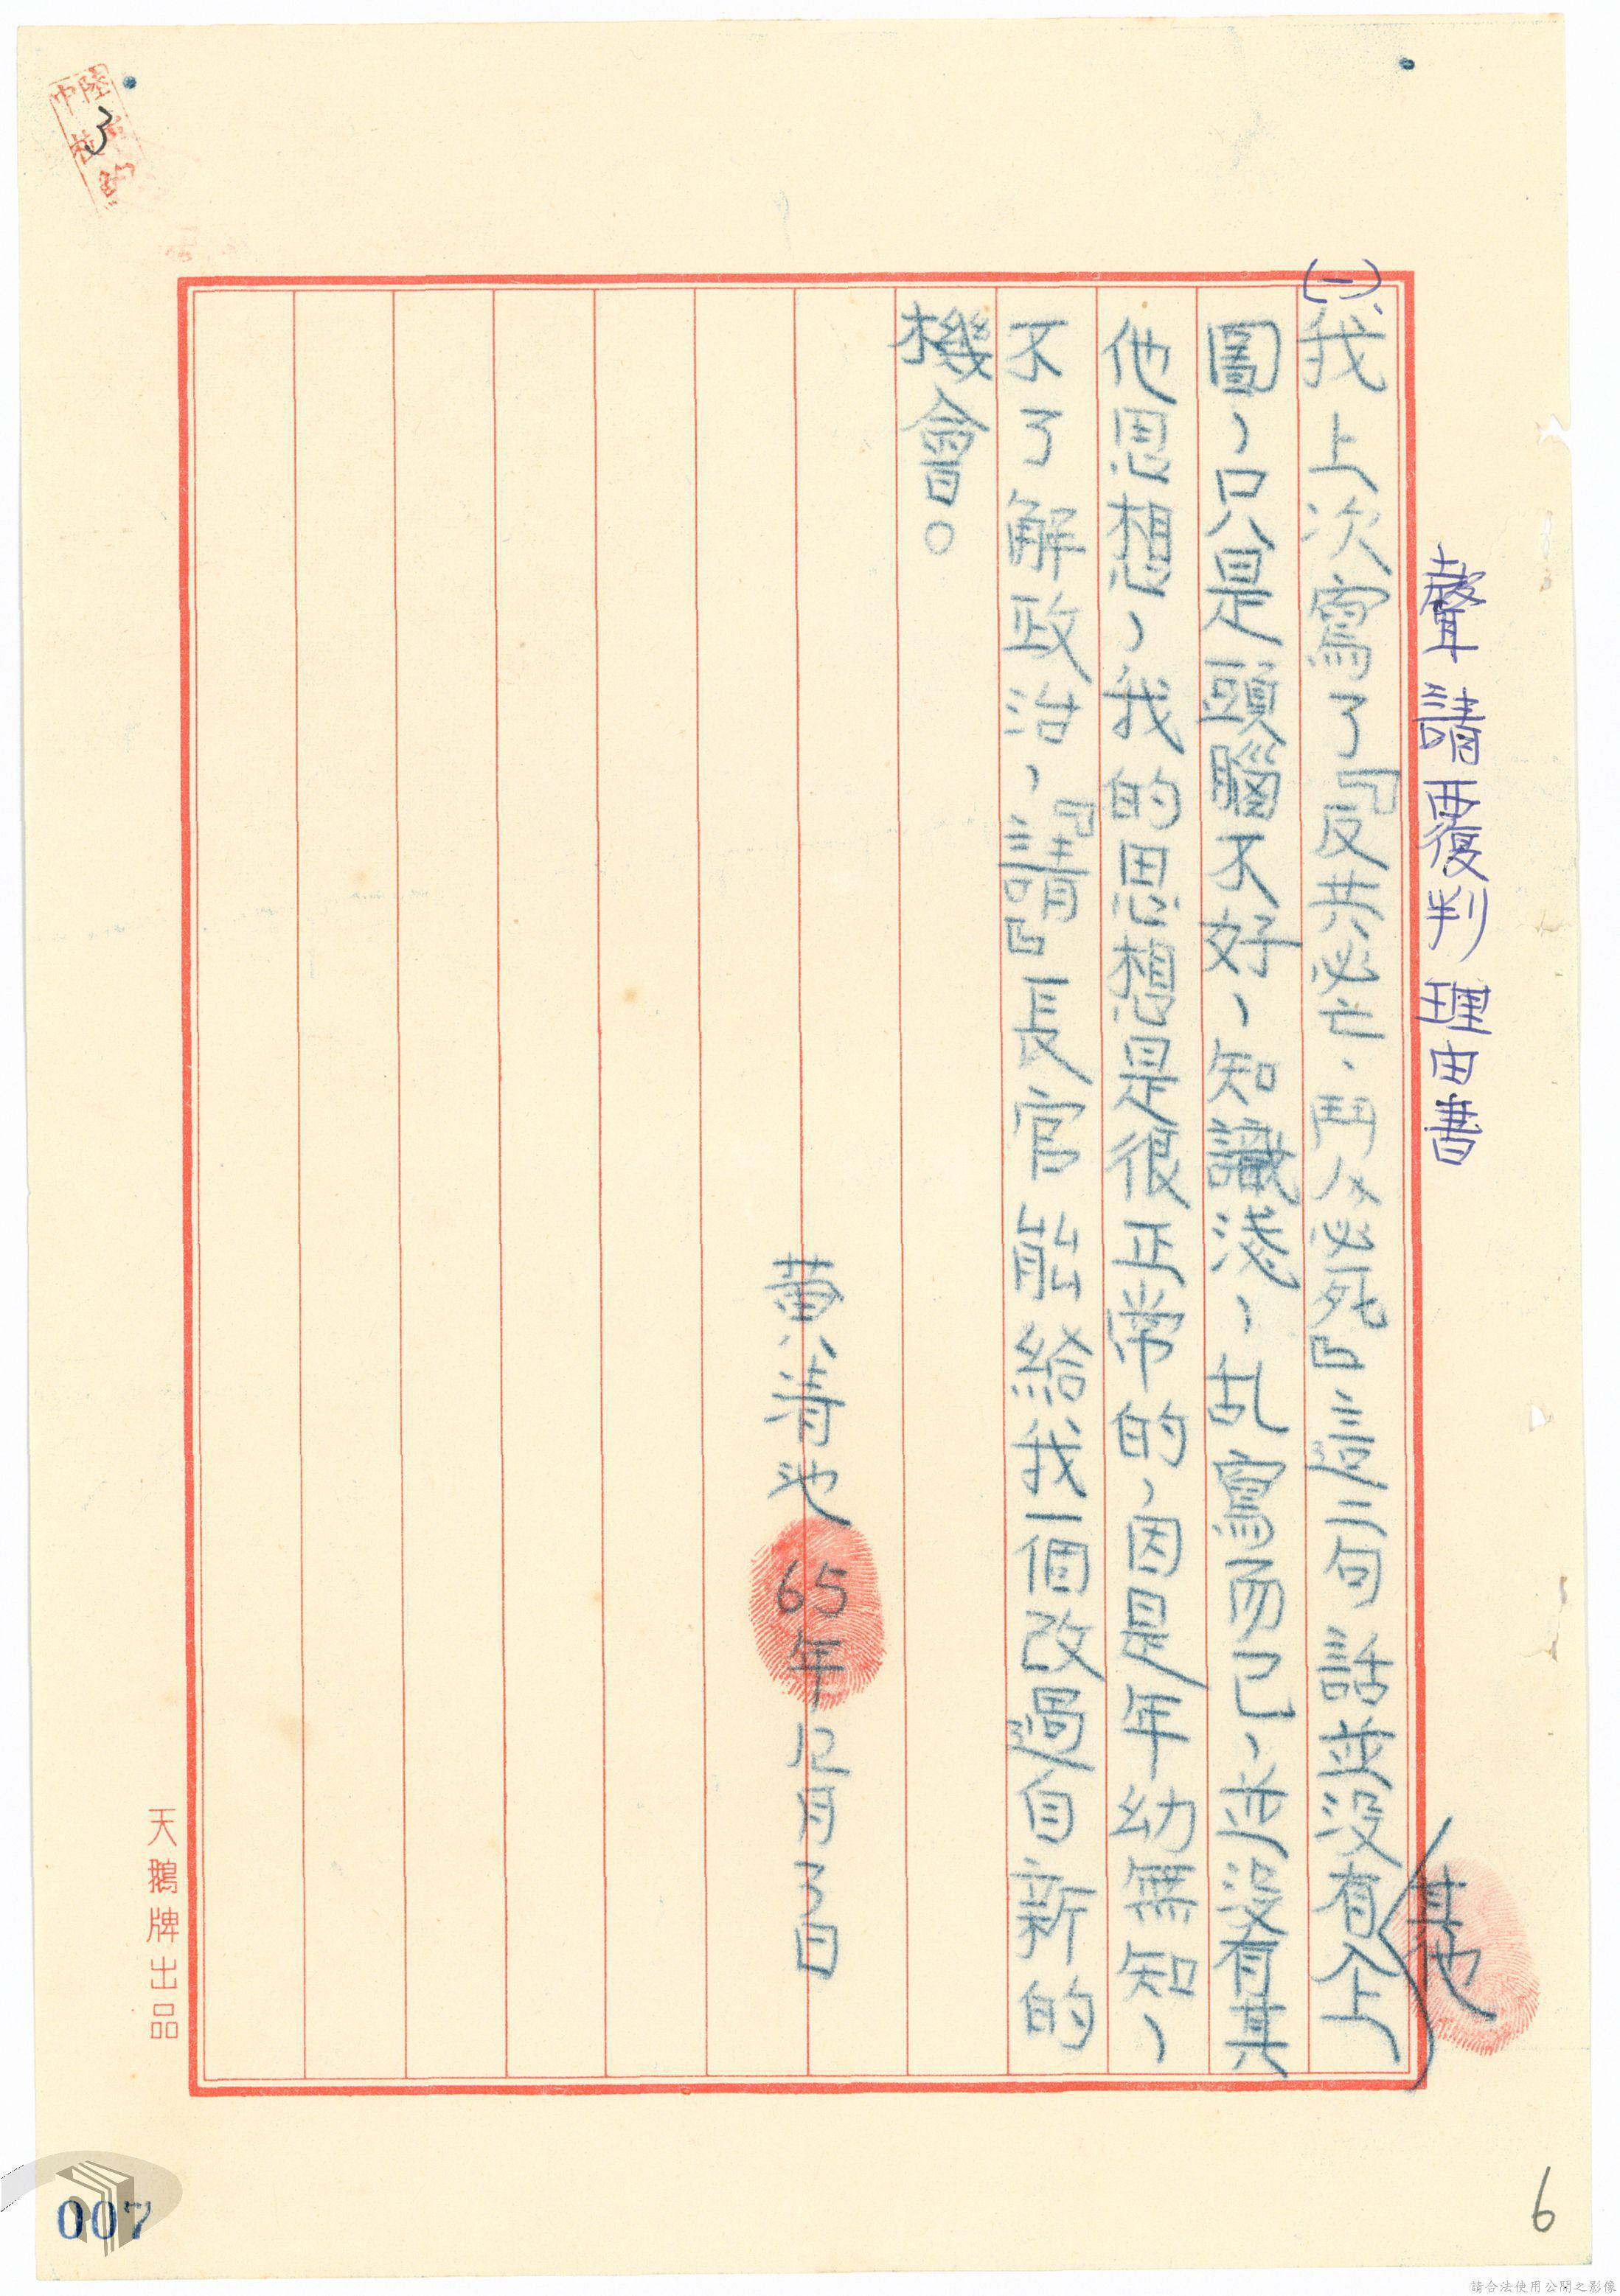 聲請覆判理由書
(一)、我上次寫了『反共必亡、鬥必死』這二句話並没有企
(其他)
圖，只是頭腦不好，知識淺，乱寫而已，並没有其
他思想，我的思想是很正常的，因是年幼無知，
不了解政治，『請』長官能給我一個改過自新的
機會。
黄清池 65年12月3日
3
天鵝牌出品
007
6
請合法使用公開之影像